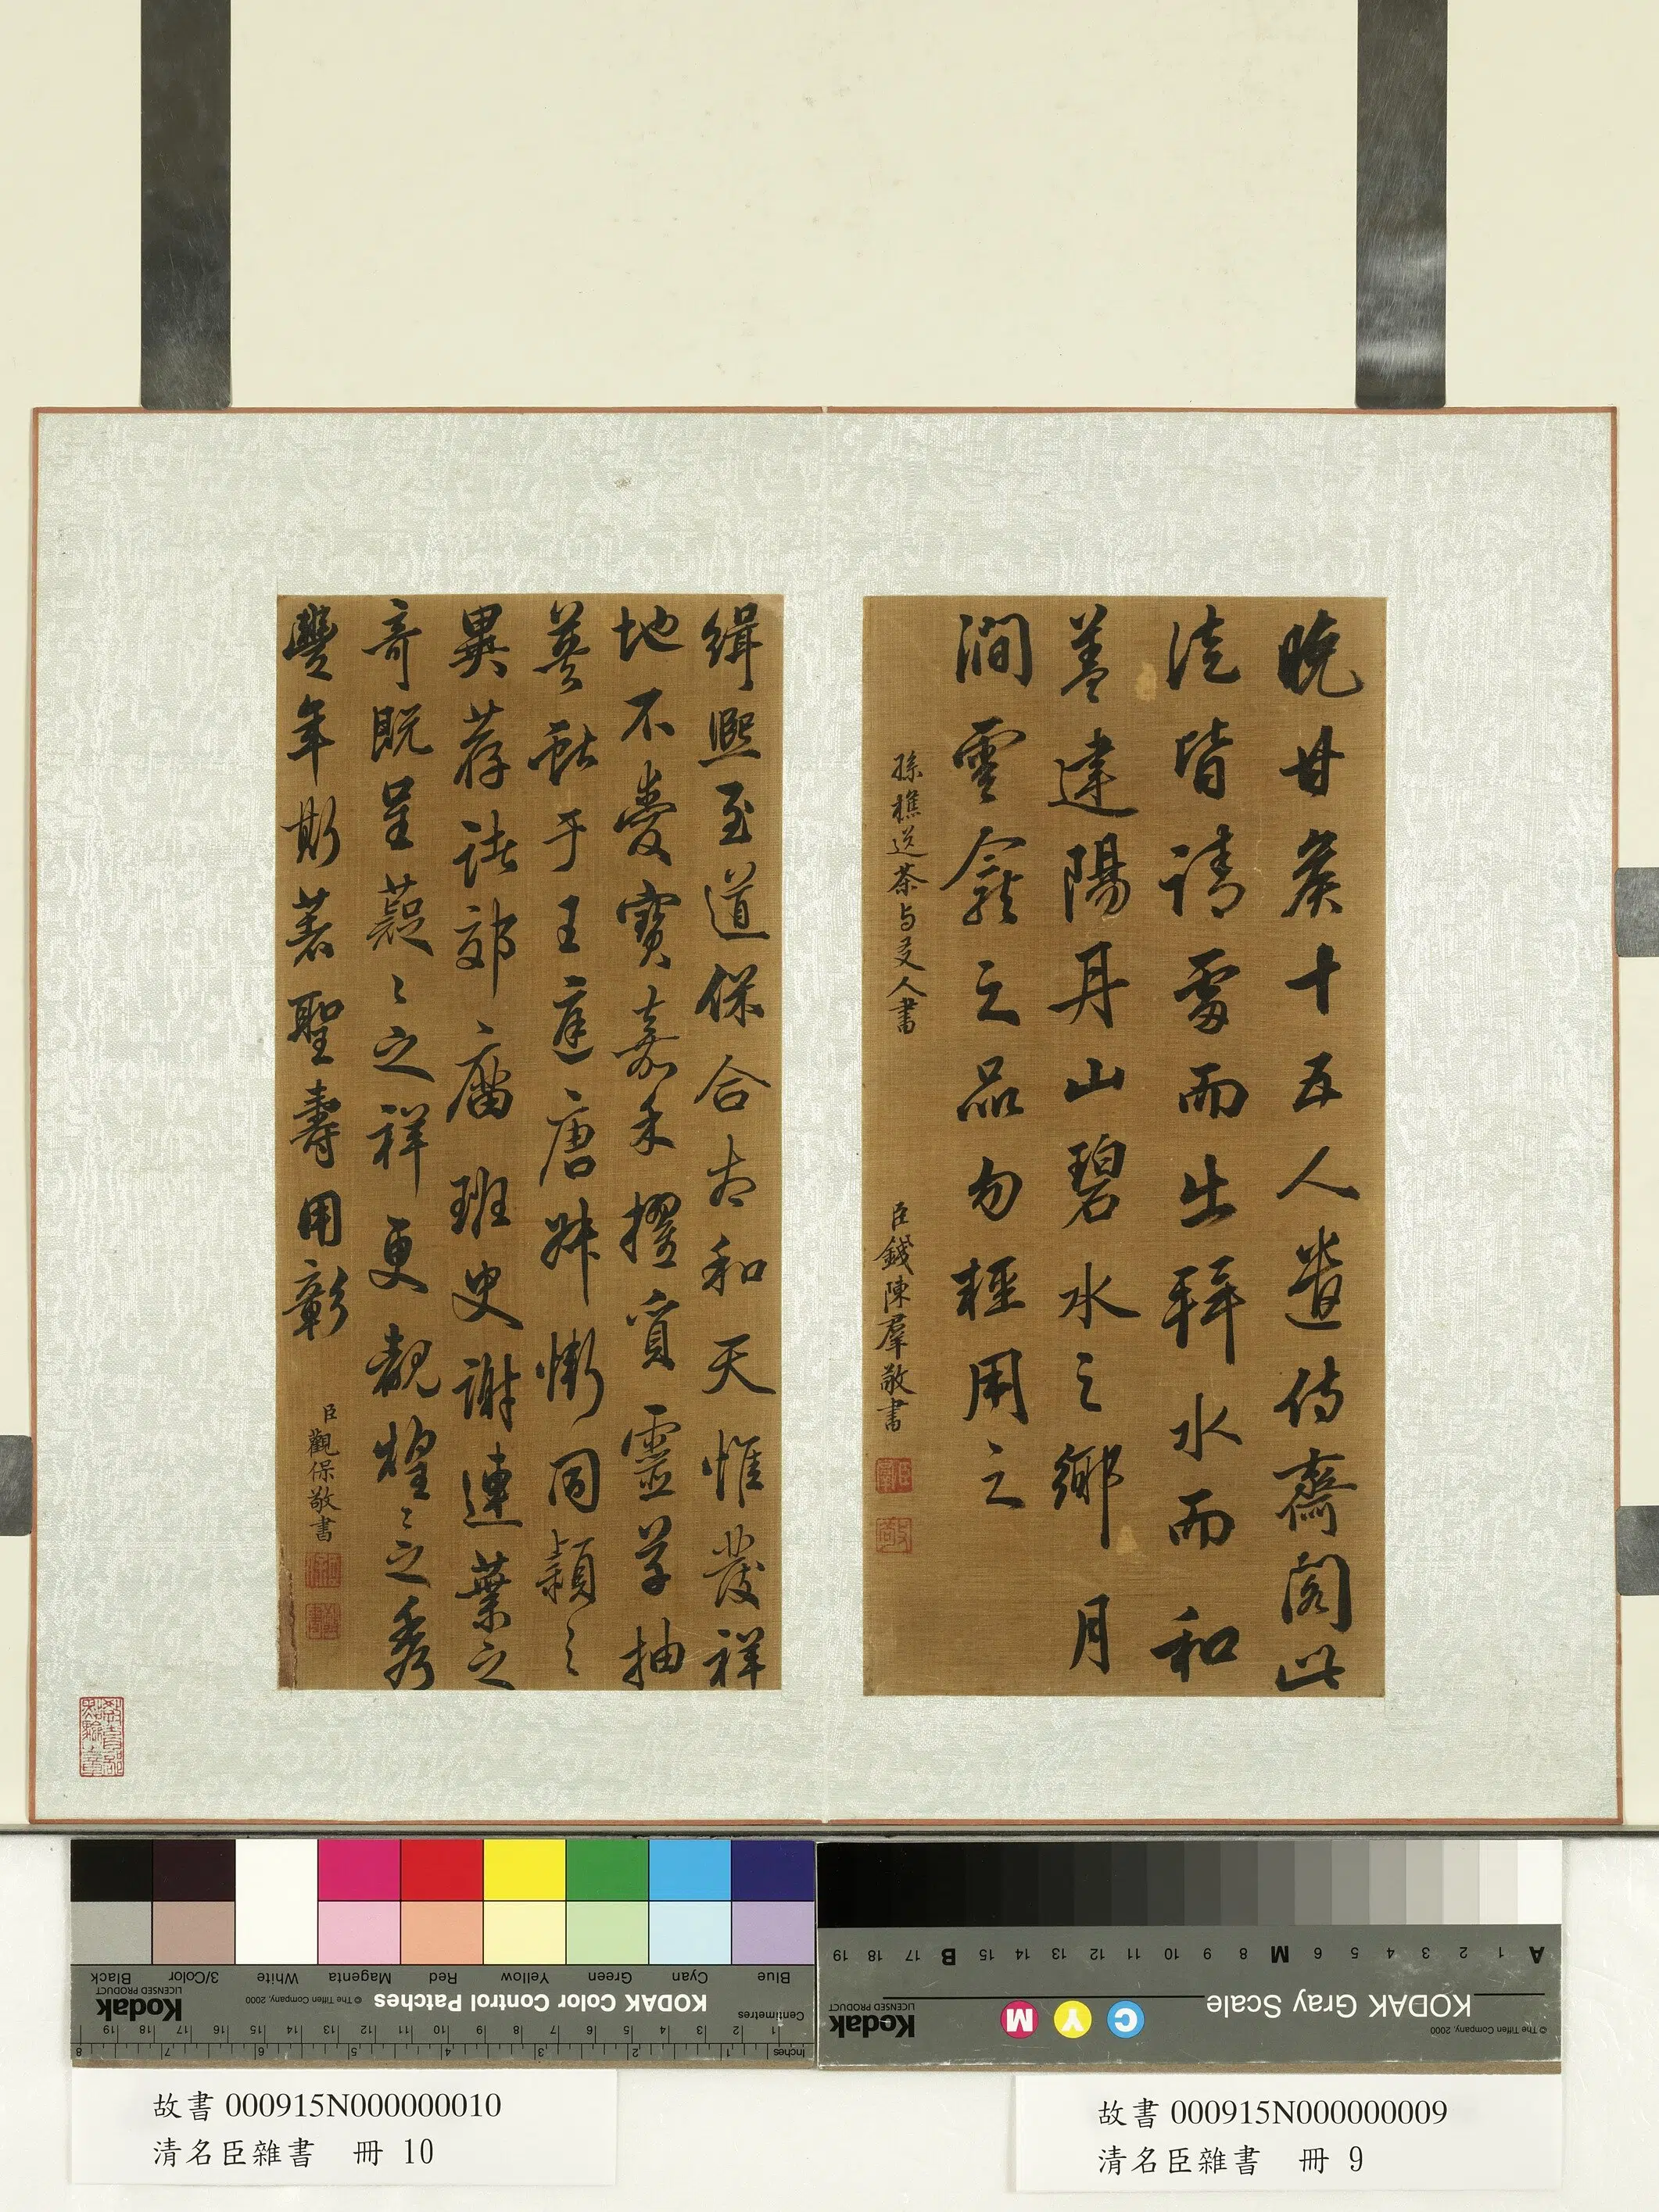 晚甘矦十五人遣侍齋閣此
徒皆請雷而出拜水而和
盖建陽丹山碧水之鄉月
澗雲龕之品勿輕用之
孫樵送茶与友人書
臣錢陳羣敬書
緝熙至道保合太和天惟發祥
地不愛寶嘉禾擢質靈草抽
莖獻于王庭唐叔慚同穎之
異荐諸郊廟班史謝連葉之
奇既呈薿〻之祥更覩煌〻之秀
豐年斯著聖壽用彰
臣觀保敬書
Blue Cyan Green Yellow Red Magenta White 3/Color Black
KODAK Color Control Patches
© The Tiffen Company, 2000
Kodak
LICENSED PRODUCT
Centimetres
Inches
A 1 2 3 4 5 6 M 8 9 10 11 12 13 14 15 B 17 18 19
KODAK Gray Scale
C Y M
Kodak
LICENSED PRODUCT
© The Tiffen Company, 2000
故書 000915N000000010
清名臣雜書 冊 10
故書 000915N000000009
清名臣雜書 冊 9